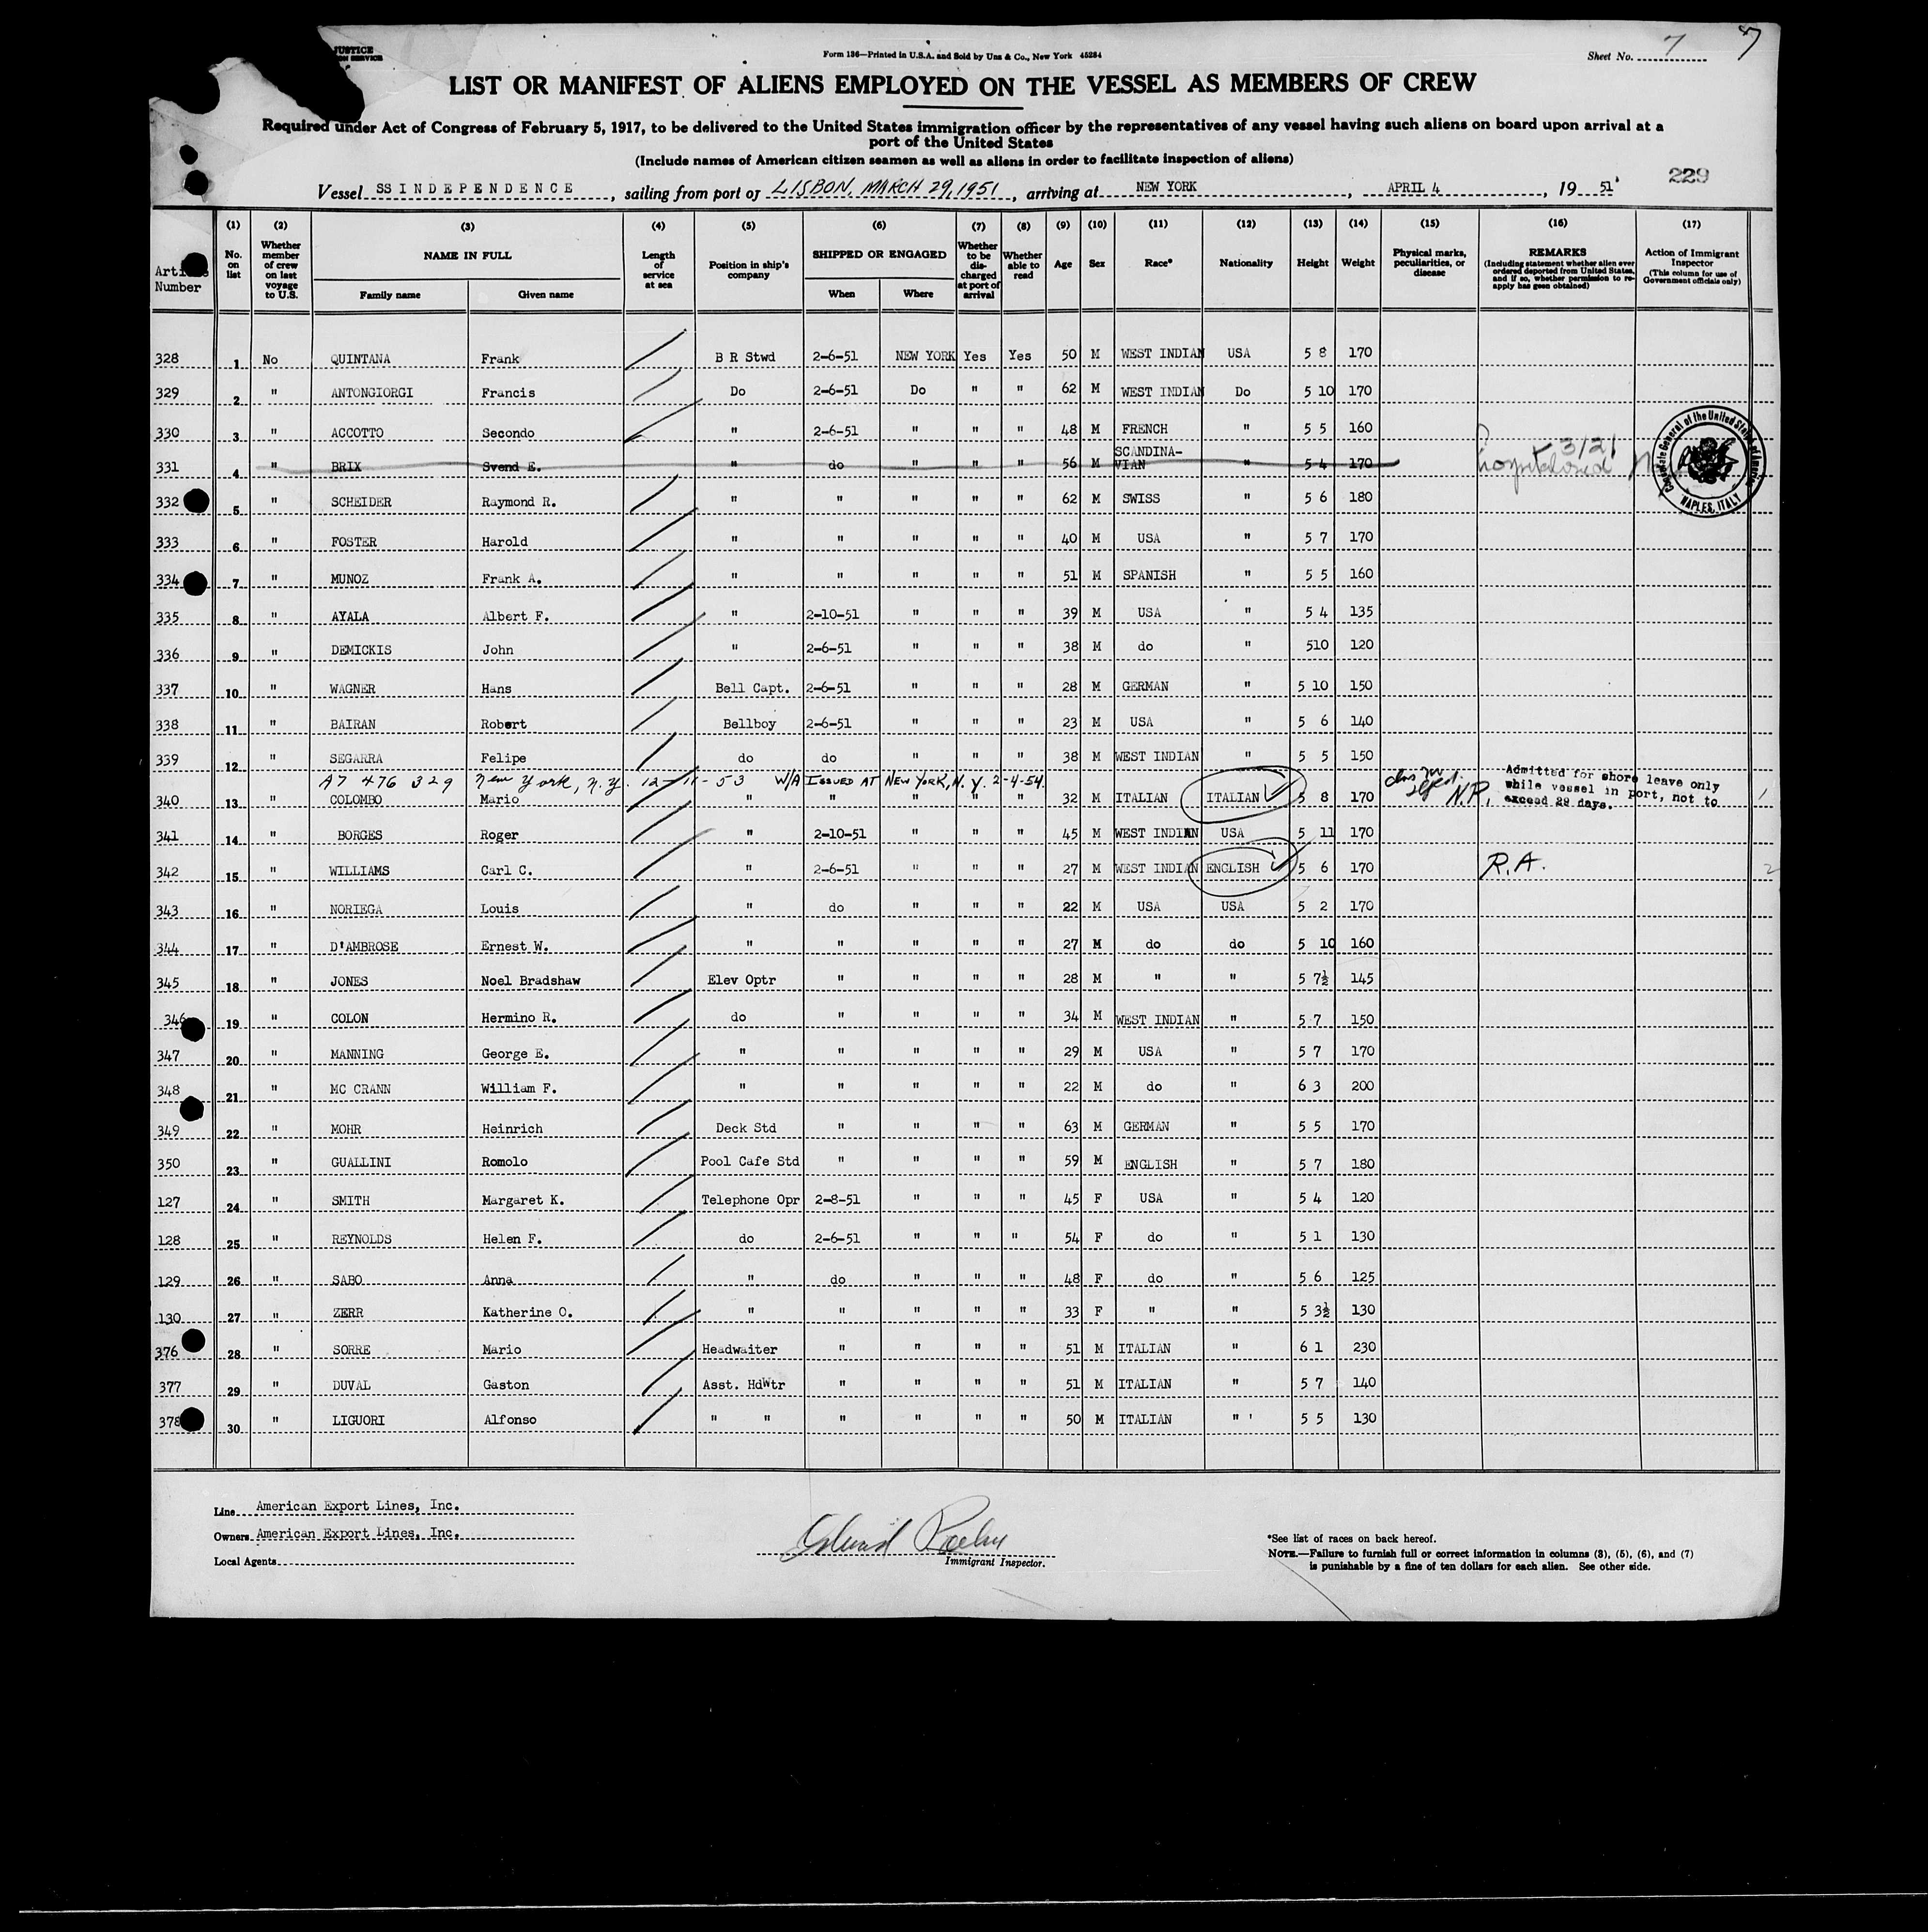 JUSTICE
Form 136—Printed in U.S.A. and Sold by Unz & Co., New York 45284
Sheet No. 7
7
LIST OR MANIFEST OF ALIENS EMPLOYED ON THE VESSEL AS MEMBERS OF CREW
Required under Act of Congress of February 5, 1917, to be delivered to the United States immigration officer by the representatives of any vessel having such aliens on board upon arrival at a
port of the United States
(Include names of American citizen seamen as well as aliens in order to facilitate inspection of aliens)
229
Vessel SS INDEPENDENCE, sailing from port of LISBON, MARCH 29, 1951, arriving at NEW YORK, APRIL 4, 19 51
(1) (2) (3) (4) (5) (6) (7) (8) (9) (10) (11) (12) (13) (14) (15) (16) (17)
Number No. on list Whether member of crew on last voyage to U.S. NAME IN FULL Family name Given name Length of service at sea Position in ship's company SHIPPED OR ENGAGED When Where Whether to be discharged at port of arrival Whether able to read Age Sex Race* Nationality Height Weight Physical marks, peculiarities, or disease REMARKS (Including statement whether alien ever ordered deported from United States, and if so, whether permission to re-apply has been obtained) Action of Immigrant Inspector (This column for use of Government officials only)
328 1 No QUINTANA Frank B R Stwd 2-6-51 NEW YORK Yes Yes 50 M WEST INDIAN USA 5 8 170
329 2 " ANTONGIORGI Francis Do 2-6-51 Do " " 62 M WEST INDIAN Do 5 10 170
330 3 " ACCOTTO Secondo " 2-6-51 " " " 48 M FRENCH " 5 5 160
331 4 " BRIX Svend E. " do " " " 56 M SCANDINA-VIAN " 5 4 170 hospitalized 3/21
Consulate General of the United States of America NAPLES, ITALY
332 5 " SCHEIDER Raymond R. " " " " " 62 M SWISS " 5 6 180
333 6 " FOSTER Harold " " " " " 40 M USA " 5 7 170
334 7 " MUNOZ Frank A. " " " " " 51 M SPANISH " 5 5 160
335 8 " AYALA Albert F. " 2-10-51 " " " 39 M USA " 5 4 135
336 9 " DEMICKIS John " 2-6-51 " " " 38 M do " 510 120
337 10 " WAGNER Hans Bell Capt. 2-6-51 " " " 28 M GERMAN " 5 10 150
338 11 " BAIRAN Robert Bellboy 2-6-51 " " " 23 M USA " 5 6 140
339 12 " SEGARRA Felipe do do " " " 38 M WEST INDIAN " 5 5 150
A7 476 329 New York, N.Y. 12-11-53 W/A ISSUED AT NEW YORK, N.Y. 2-4-54.
340 13 " COLOMBO Mario " " " " " 32 M ITALIAN ITALIAN 5 8 170 N.P. Admitted for shore leave only while vessel in port, not to exceed 29 days. 1
341 14 " BORGES Roger " 2-10-51 " " " 45 M WEST INDIAN USA 5 11 170
342 15 " WILLIAMS Carl C. " 2-6-51 " " " 27 M WEST INDIAN ENGLISH 5 6 170 R.A. 2
343 16 " NORIEGA Louis " do " " " 22 M USA USA 5 2 170
344 17 " D'AMBROSE Ernest W. " " " " " 27 M do do 5 10 160
345 18 " JONES Noel Bradshaw Elev Optr " " " " 28 M " " 5 7½ 145
346 19 " COLON Hermino R. do " " " " 34 M WEST INDIAN " 5 7 150
347 20 " MANNING George E. " " " " " 29 M USA " 5 7 170
348 21 " MC CRANN William F. " " " " " 22 M do " 6 3 200
349 22 " MOHR Heinrich Deck Std " " " " 63 M GERMAN " 5 5 170
350 23 " GUALLINI Romolo Pool Cafe Std " " " " 59 M ENGLISH " 5 7 180
127 24 " SMITH Margaret K. Telephone Opr 2-8-51 " " " 45 F USA " 5 4 120
128 25 " REYNOLDS Helen F. do 2-6-51 " " " 54 F do " 5 1 130
129 26 " SABO Anna " do " " " 48 F do " 5 6 125
130 27 " ZERR Katherine O. " " " " " 33 F " " 5 3½ 130
376 28 " SORRE Mario Headwaiter " " " " 51 M ITALIAN " 6 1 230
377 29 " DUVAL Gaston Asst. HdWtr " " " " 51 M ITALIAN " 5 7 140
378 30 " LIGUORI Alfonso " " " " " " 50 M ITALIAN " 5 5 130
Line American Export Lines, Inc.
Owners American Export Lines, Inc.
Local Agents
Immigrant Inspector.
*See list of races on back hereof.
NOTE.—Failure to furnish full or correct information in columns (3), (5), (6), and (7)
is punishable by a fine of ten dollars for each alien. See other side.